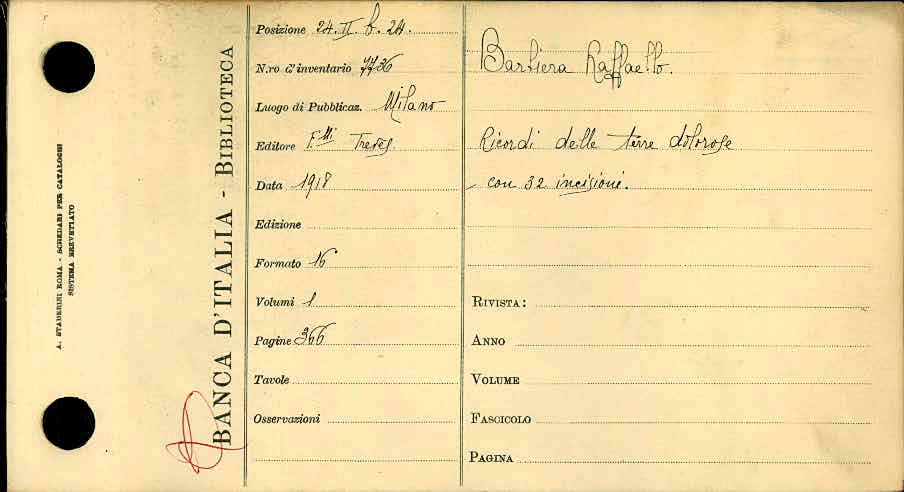 A. STADERINI ROMA - SCHEDARI PER CATALOGHI
SISTEMA BREVETTATO
BANCA D'ITALIA - BIBLIOTECA
Posizione 24. II. b. 24.
N.ro d'inventario 7736
Luogo di Pubblicaz. Milano
Editore F.lli Treves.
Data 1918
Edizione
Formato 16
Volumi 1
Pagine 366
Tavole
Osservazioni
Barbiera Raffaello.
Ricordi delle terre dolorose
con 32 incisioni.
RIVISTA:
ANNO
VOLUME
FASCICOLO
PAGINA